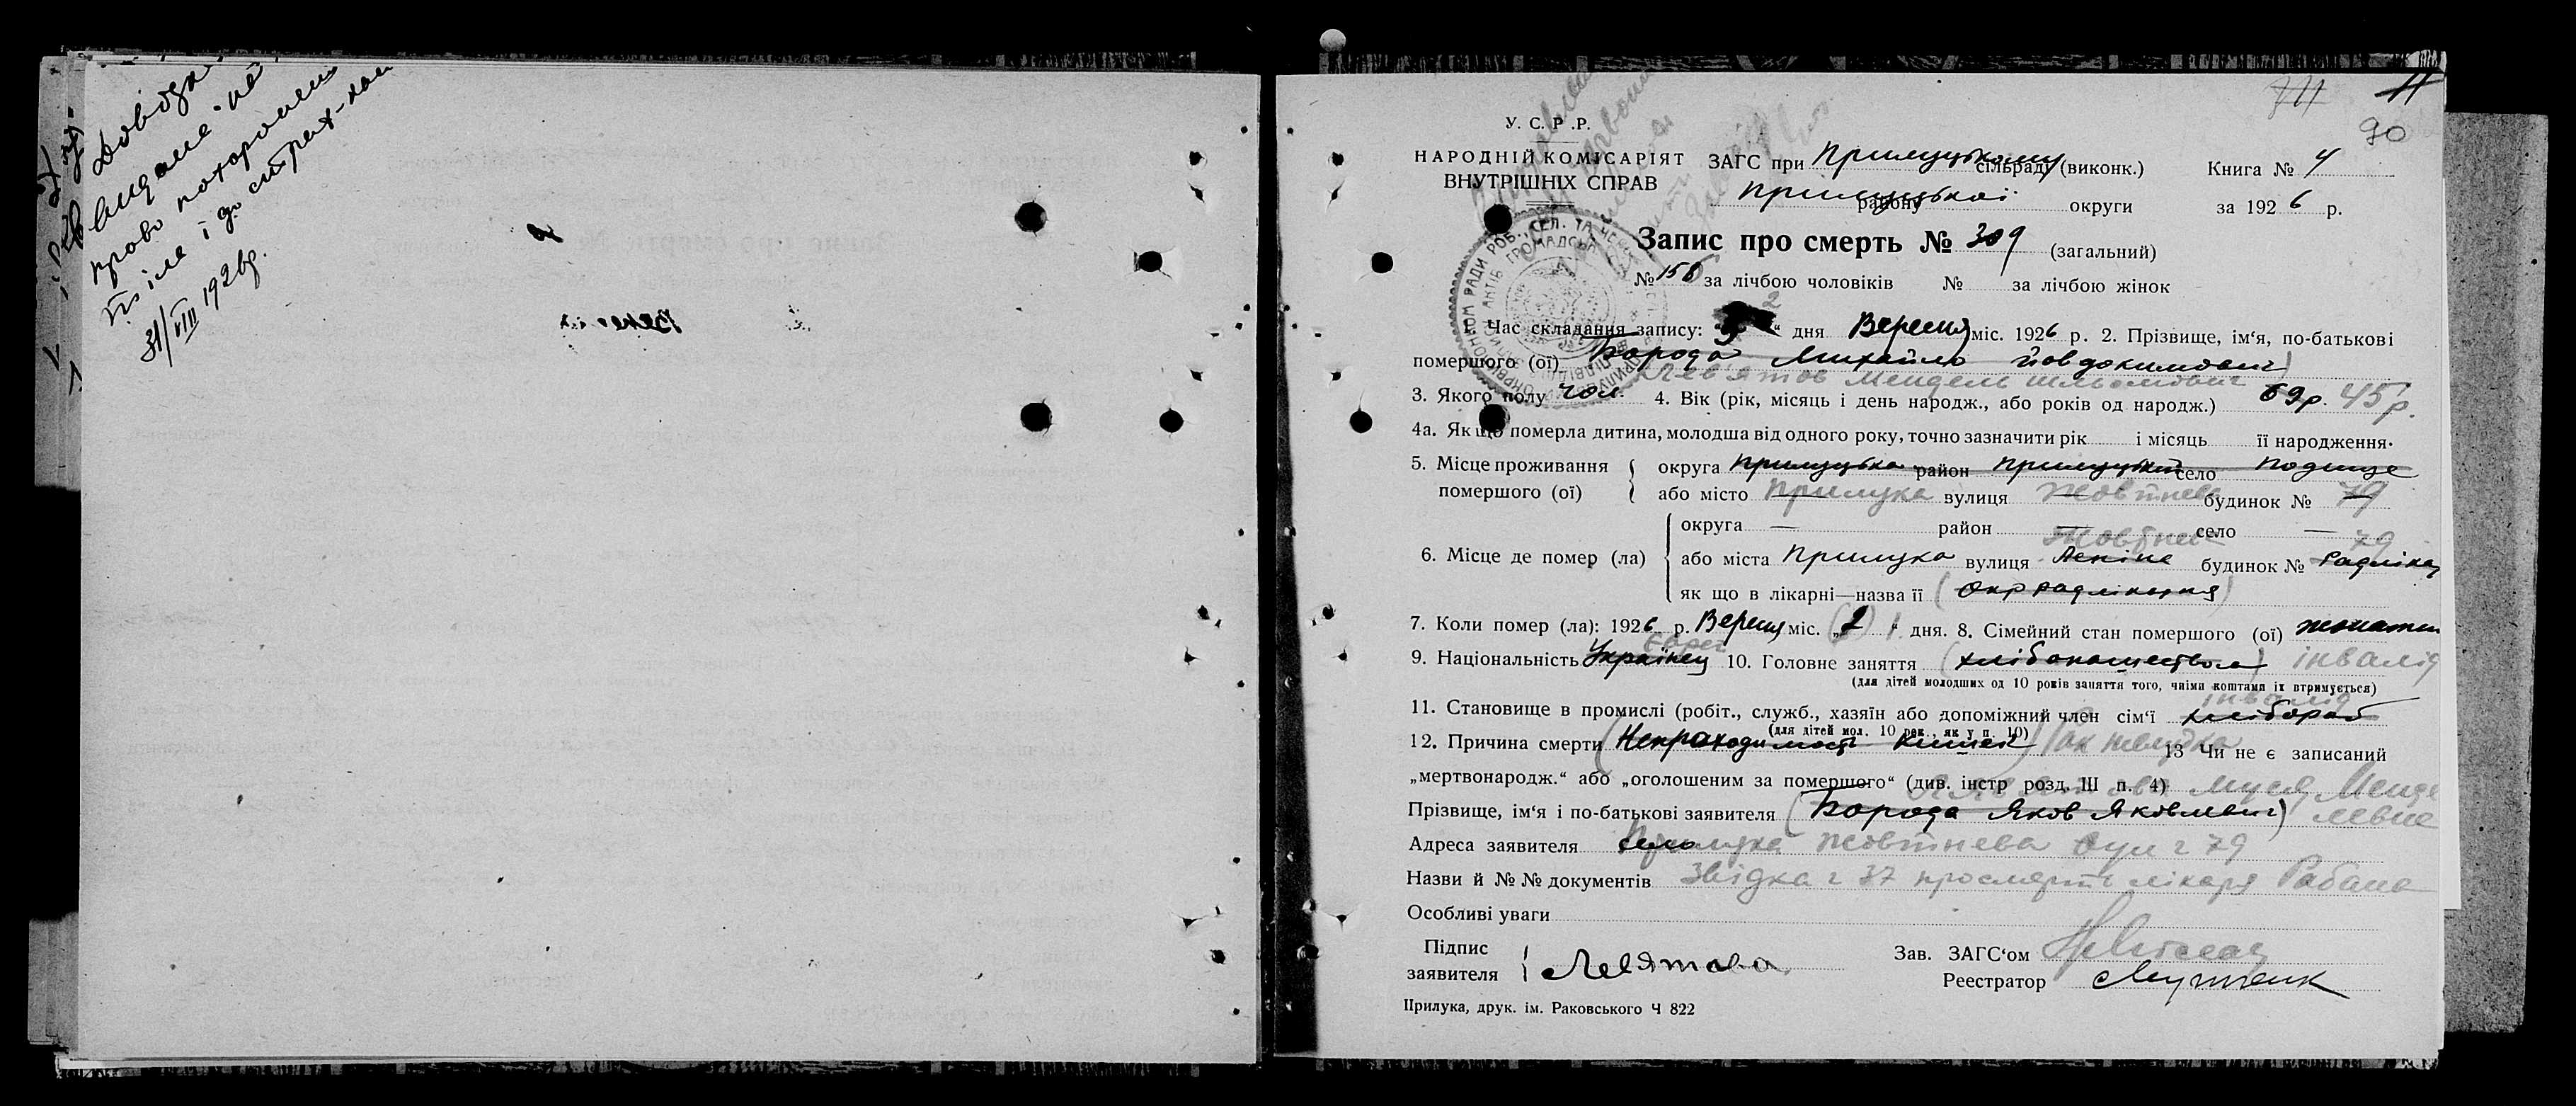 Довідка
видана на
право похоронен
тіла і до страх-каси
31/VIII 1926р.
90
У. С. Р. Р.
НАРОДНІЙ КОМІСАРІЯТ
ВНУТРІШНІХ СПРАВ
ЗАГС при Прилуцькому сільраду (виконк.) Книга № 4
Прилуцької району округи за 1926 р.
Запис про смерть № 309 (загальний)
№ 158 за лічбою чоловіків № за лічбою жінок
1. Час складання запису: 2 " дня Вересня міс. 1926 р. 2. Прізвище, ім'я, по-батькові
помершого (ої) Борода Михайло Йовдокимович
Лев'ятов Мендель Шльомович
3. Якого полу чол. 4. Вік (рік, місяць і день народж., або років од народж.) 69р. 45р.
4а. Як що померла дитина, молодша від одного року, точно зазначити рік і місяць її народження.
5. Місце проживання помершого (ої) { округа Прилуцька район Прилуцький село Подище
або місто Прилука вулиця Жовтнева будинок № 79
6. Місце де помер (ла) { округа — район — село —
Жовтнева 79
або міста Прилука вулиця Леніна будинок № Радлікар
як що в лікарні—назва її (Окррадлікарня)
7. Коли помер (ла): 1926 р. Вересня міс. „(2) 1 " дня. 8. Сімейний стан помершого (ої) жонатий
Єврей
9. Національність Українец 10. Головне заняття (хлібопашеством) інвалід
(для дітей молодших од 10 років заняття того, чиїми коштами їх втримується)
інвалід
11. Становище в промислі (робіт., служб., хазяїн або допоміжний член сім'ї хлібороб
(для дітей мол. 10 рок., як у п. 10)
12. Причина смерти (Непроходимость кишек) Рак 13 Чи не є записаний
„мертвонародж." або „оголошеним за помершого" (див. інстр розд. III п. 4)
Менде
Прізвище, ім'я і по-батькові заявителя (Борода Яков Яковлевич) левна
Адреса заявителя Прилука Жовтнева вул ч 79
Назви й №№ документів Звідка ч 37 про смерть лікаря Рабана
Особливі уваги
Підпис заявителя { Левятова
Зав. ЗАГС'ом
Реестратор
Прилука, друк. ім. Раковського Ч 822